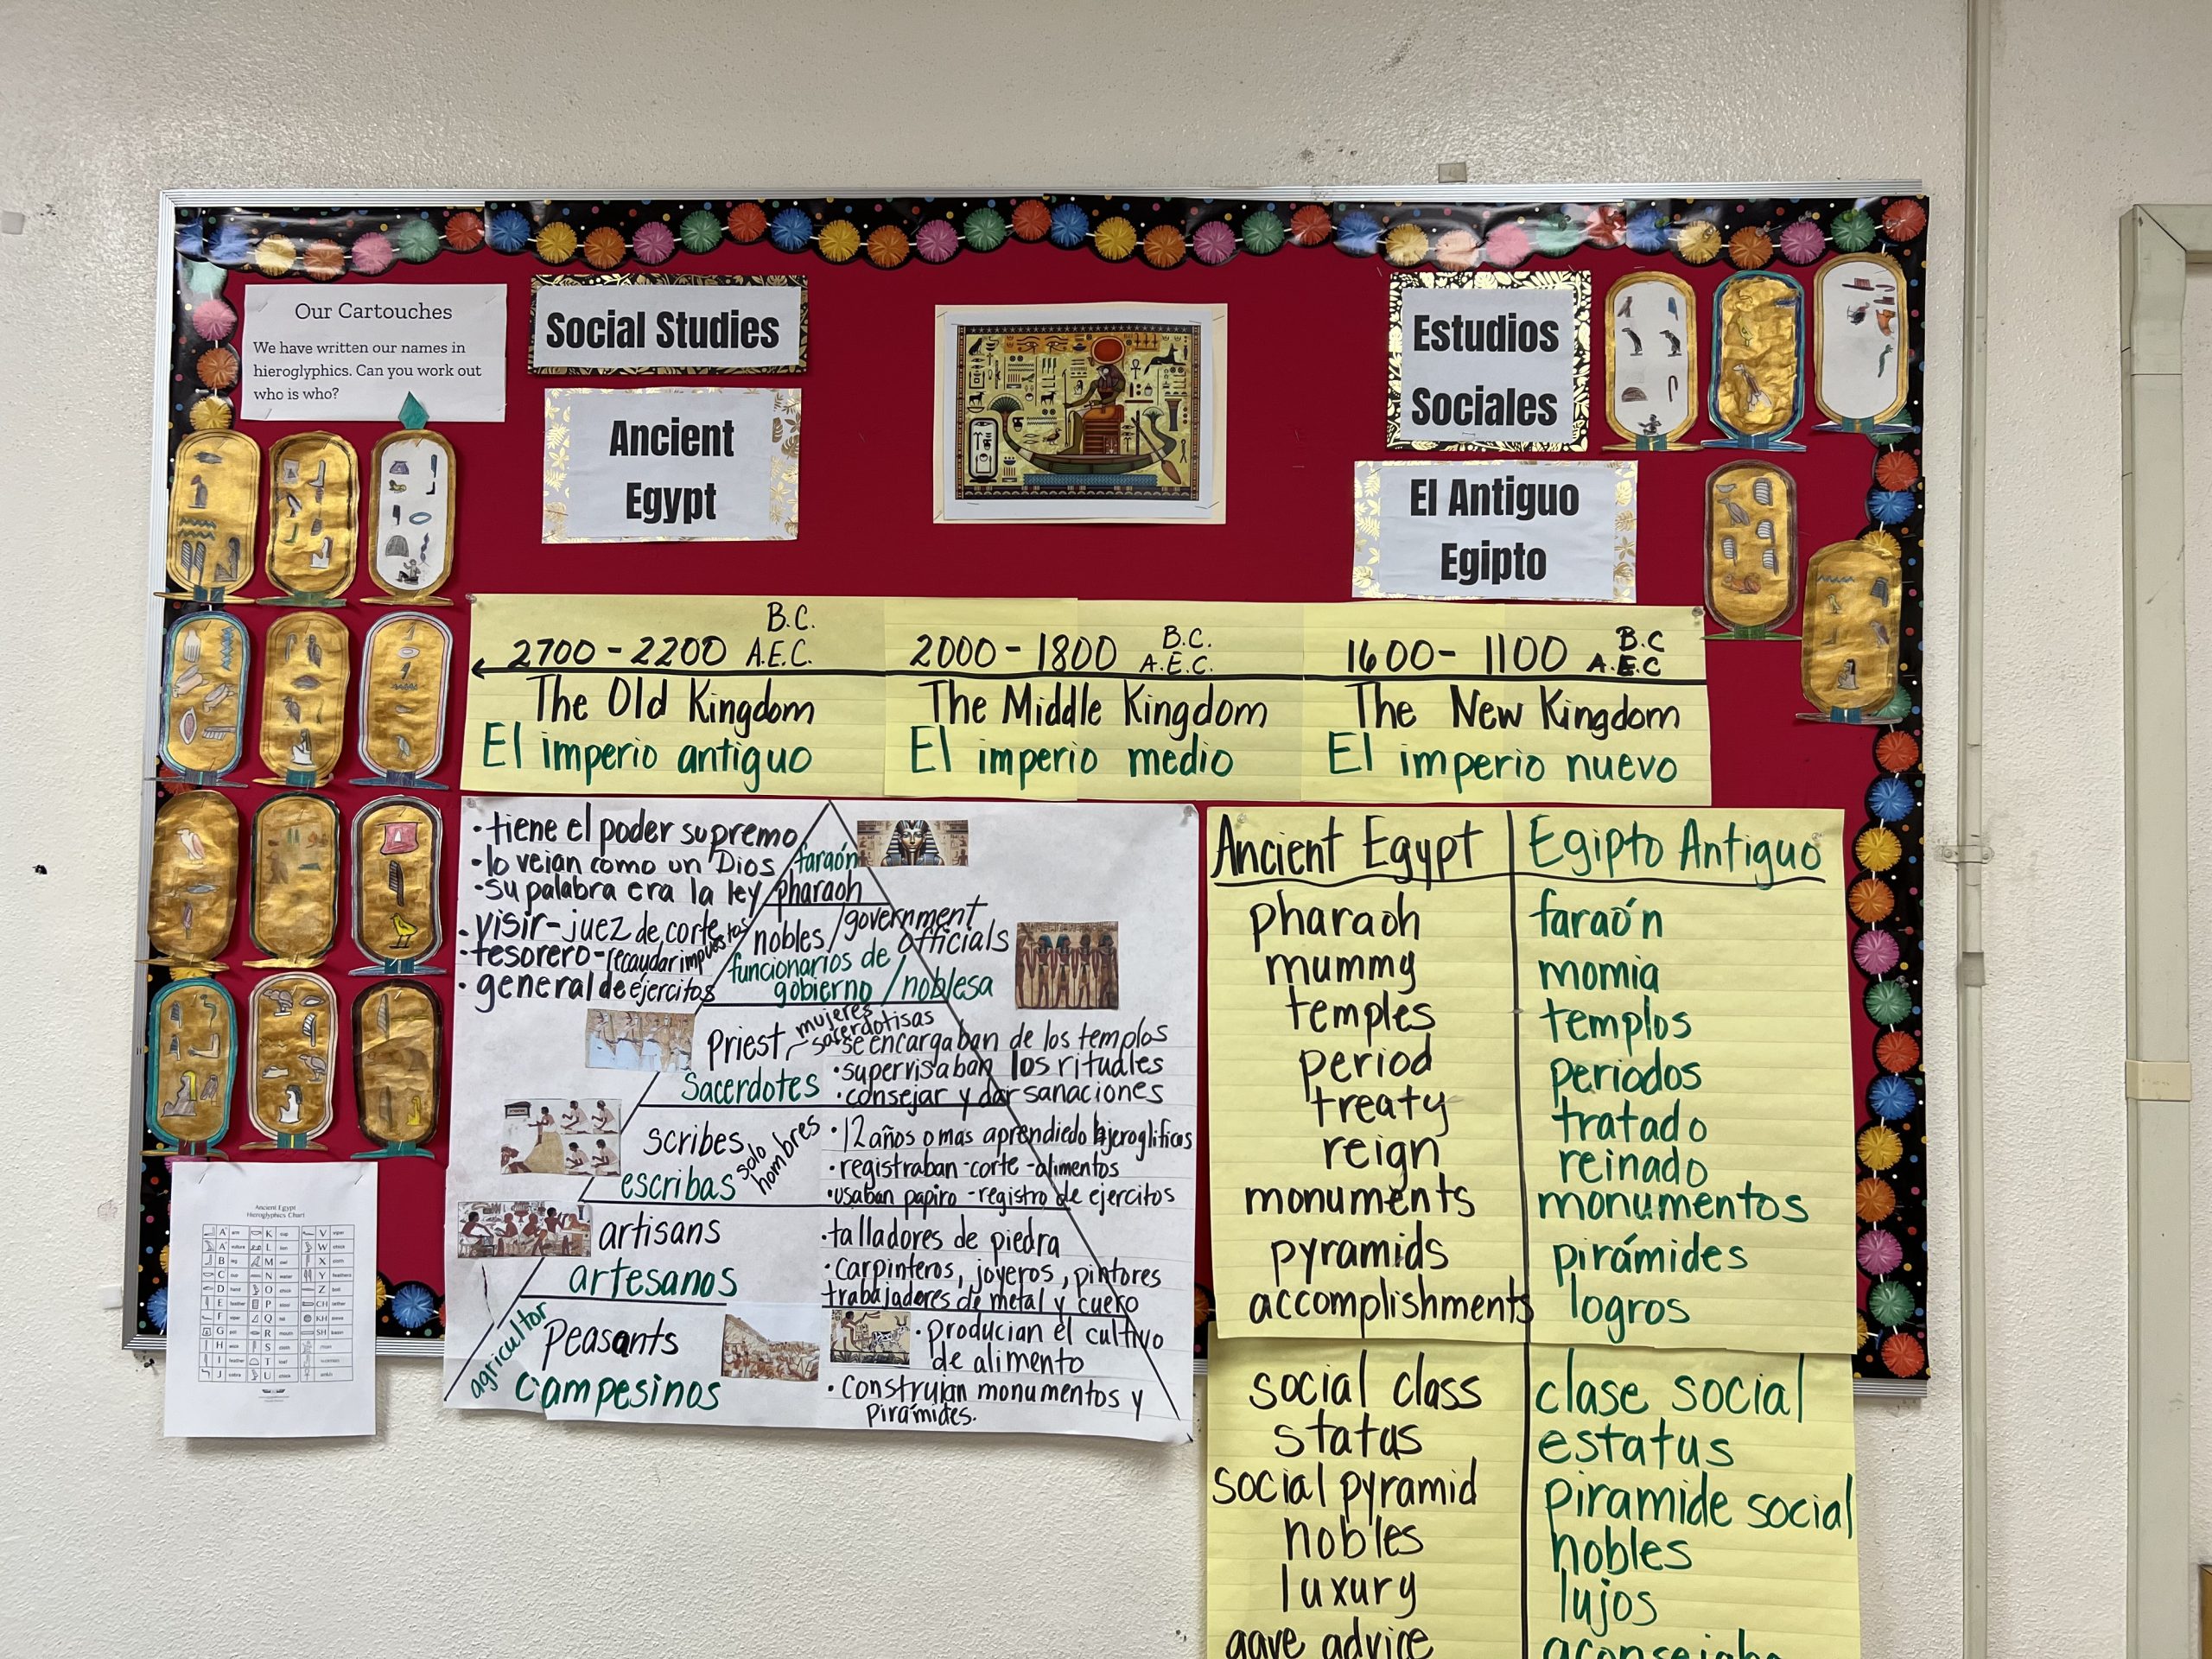 Our Cartouches
We have written our names in
hieroglyphics. Can you work out
who is who?
Social Studies
Ancient
Egypt
Estudios
Sociales
El Antiguo
Egipto
2700-2200 B.C.
A.E.C.
The Old Kingdom
El imperio antiguo
2000-1800 B.C.
A.E.C.
The Middle Kingdom
El imperio medio
1600-1100 B.C
A.E.C
The New Kingdom
El imperio nuevo
•tiene el poder supremo
•lo veian como un Dios
•su palabra era la ley
faraón
pharaoh
•visir-juez de corte
•tesorero-recaudar impuestos
•general de ejercitos
nobles/government
officials
funcionarios de
gobierno/noblesa
priest-mujeres
sacerdotisas
Sacerdotes
•se encargaban de los templos
•supervisaban los rituales
•consejar y dar sanaciones
scribes
escribas
solo
hombres
•12 años o mas aprendiedo hjeroglificos
•registraban-corte-alimentos
•usaban papiro-registro de ejercitos
artisans
artesanos
•talladores de piedra
•carpinteros, joyeros, pintores
trabajadores de metal y cuero
agricultor
Peasants
Campesinos
•producian el cultivo
de alimento
•construian monumentos y
pirámides.
Ancient Egypt Egipto Antiguo
pharaoh faraón
mummy momia
temples templos
period periodos
treaty tratado
reign reinado
monuments monumentos
pyramids pirámides
accomplishments logros
social class clase social
status estatus
social pyramid piramide social
nobles nobles
luxury lujos
gave advice aconsejaba
Ancient Egypt
Hieroglyphics Chart
A
K
V
A
L
W
B
M
X
C
N
Y
D
O
Z
E
P
CH
F
Q
KH
G
R
SH
H
S
I
T
J
U